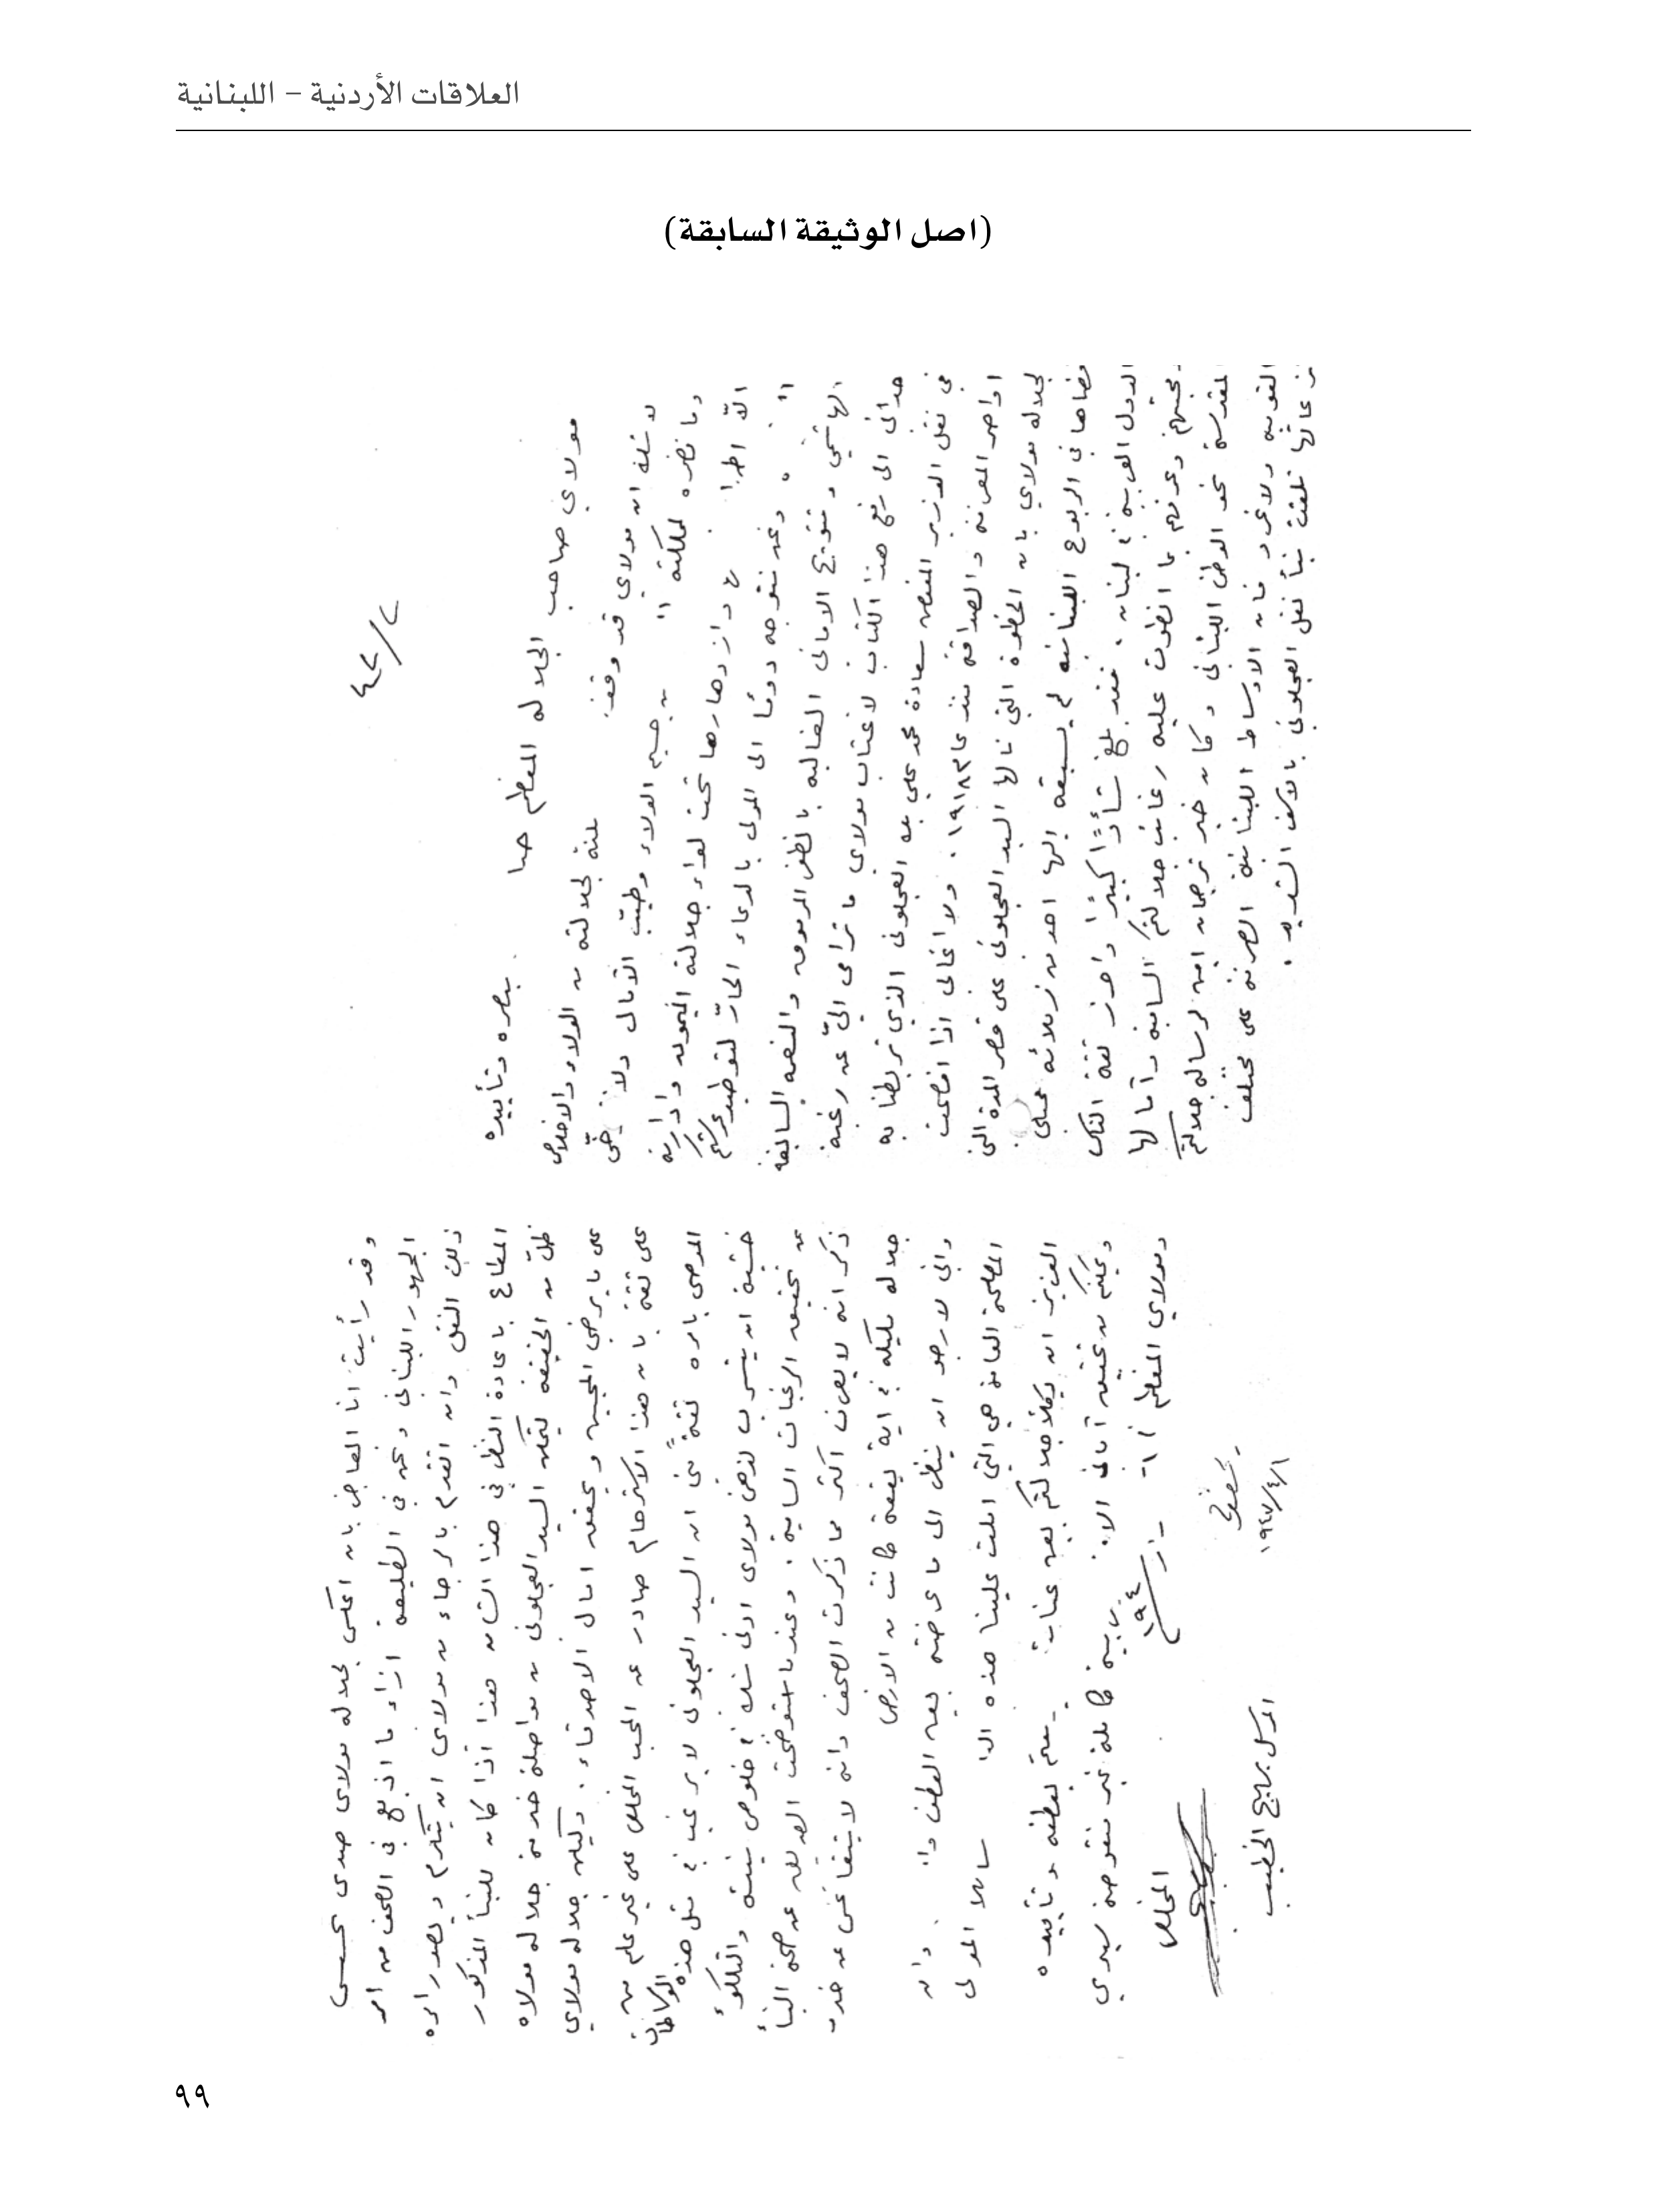 العلاقات الأردنية – اللبنانية
(اصل الوثيقة السابقة)
مولاي صاحب الجلاله المعظم بنصره وتأييده
لجلالته من الولاء والاخلاص
لا شك ان مولاي قد وقف الولاء وطيب الآمال ولا
وما نضره لمملكته وازدهارها تحت لواء جلالته الميمونه وادارته
ونحن نتوجه دومًا الى المولى بالدعاء الحارّ لتوطيد عرشكم
الهاشمي وتتويج الاماني الغاليه بالظفر المرموق والنعمه السابغه
حداني الى رفع هذا الكتاب لاعتاب مولاي ما ترامى اليّ عن رغبة
في نقل الوزير المفوض سعادة محمد علي بك العجلوني الذي تربطنا به
اواصر المعرفة والصداقة منذ عام ١٩١٨ ولا اغالي اذا افصحت
لجلاله مولاي بان الحظوة التي نالها السيد العجلوني على قصر المدة التي
قضاها في الربوع اللبنانيه لم يسبقه إليها احد من زملائه ممثلي
الدول العربية في لبنان. فقد بلغ شأوًا كبيرًا واحرز ثقة الكل
ومحبتهم وعرفهم بما انطوت عليه رغائب جلالتكم السامية وآمالها
المقدسة نحو الوطن اللبناني وكان خير ترجمان امين لرسالة جلالتكم
القوميه ولا غرو فان الاوساط اللبنانية الصرفة على مختلف
نزعاتها تلقت نبأ نقل العجلوني بالاسف الشديد.
وقد رأيت انا العاجز بان اعكس لجلاله مولاي صدى تحسس
الجمهور اللبناني ونحن في الطليعة ازاء ما اذيع في الصحف من امر
ذلك النقل وان اتقدم بالرجاء من مولاي ان يتكرم ويصدر امره
المطاع باعادة النظر في هذا الشان هذا اذا كان للنبأ المذكور
ظلّ من الحقيقه ليتمكن السيد العجلوني من مواصلة خدمة جلاله مولاه
على ما يرضي المحبين ويحقق امال الاصدقاء. وليكن جلاله مولاي
على ثقة بان هذا الاسترحام صادر عن المحب المخلص على غير علم من
الموصى بامره ثقةً مني ان السيد العجلوني لا يرغب في مثل هذه الوساطات
خشية ان يتسرب لذهن مولاي ادنى شك في خلوص نيته والتلكؤ
عن تحقيق الرغبات السامية. وعندما استوضحت الصديق عن صحة النبأ
ذكر انه لا يعرف اكثر مما ذكرت الصحف وانه لا يتقاعس عن خدمة
جلاله مليكه في اية بقعة كانت من الارض
واني لارجو ان ينظر الى ما عرضته بعين العطف وان
المصلحة العامة هي التي املت علينا هذه سائلا المولى
العزيز ان يكلأ جلالتكم بعين عنايته بعطفه وتأييده
ويمكنكم من تحقيق آماني كاملة غير منقوصة سيدي
ومولاي المعظم
المخلص
دمشق
١٩٤٧/٤/١
المرسل بهيج الخطيب
٩٩